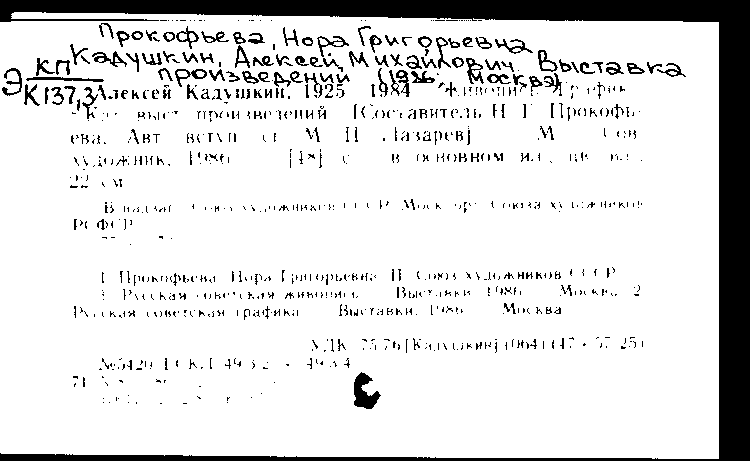 Прокофьева, Нора Григорьевна
Кадушкин, Алексей Михайлович. Выставка
произведений (1986; Москва)
Э КП
К137,3
Алексей Кадушкин, 1925 1984 Живопись. График
Кат. выст. произведений [Составитель Н. Г. Прокофь-
ева. Авт. вступ. ст. М. П. Лазарев] М. Сов.
художник, 1986 [48] с. в основном ил., цв. ил.,
22 см
В надзаг. Союз художников СССР. Моск. орг. Союза художников
РСФСР
I. Прокофьева, Нора Григорьевна. II. Союз художников СССР
1. Русская советская живопись Выставки, 1986 Москва. 2.
Русская советская графика Выставки, 1986 Москва
УДК 75/76[Кадушкин](064)(47+57-25)
№5420 ГСКЛ 49.3.2 49.3.4
71